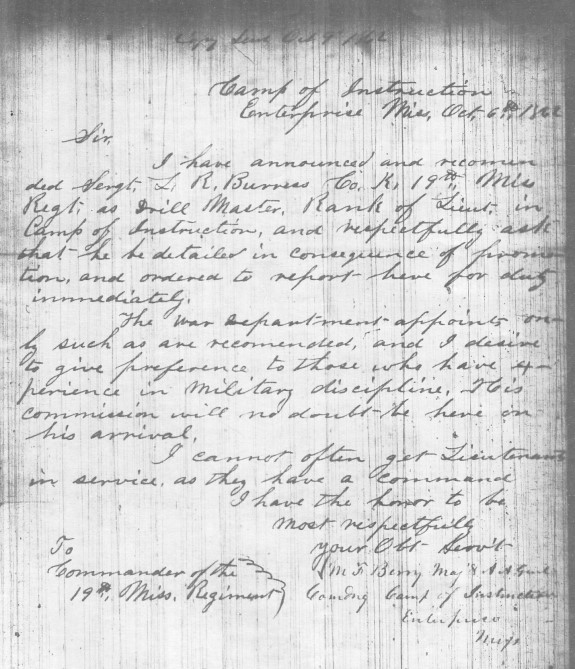 Oct 9 1862
Camp of Instruction
Enterprise Miss, Oct, 6th, 1862
Sir,
I have announced and recomen
ded Sergt, L. R. Burress Co, K, 19th, Miss
Regt; as Drill Master, Rank of Lieut, in
Camp of Instruction, and respectfully ask
that he be detailed in consequence of promo
tion, and ordered to report here for duty
immediately.
The war Department appoints on-
ly such as are recomended, and I desire
to give preference to those who have ex-
perience in Military discipline. His
commission will no doubt be here on
his arrival.
I cannot often get Lieutenants
in service, as they have a command
I have the honor to be
most respectfully
your Obt Serv't
To
M F Berry Maj & A A Genl
Commander of the
Comdng Camp of Instruction
19th, Miss. Regiment
Enterprise
Miss